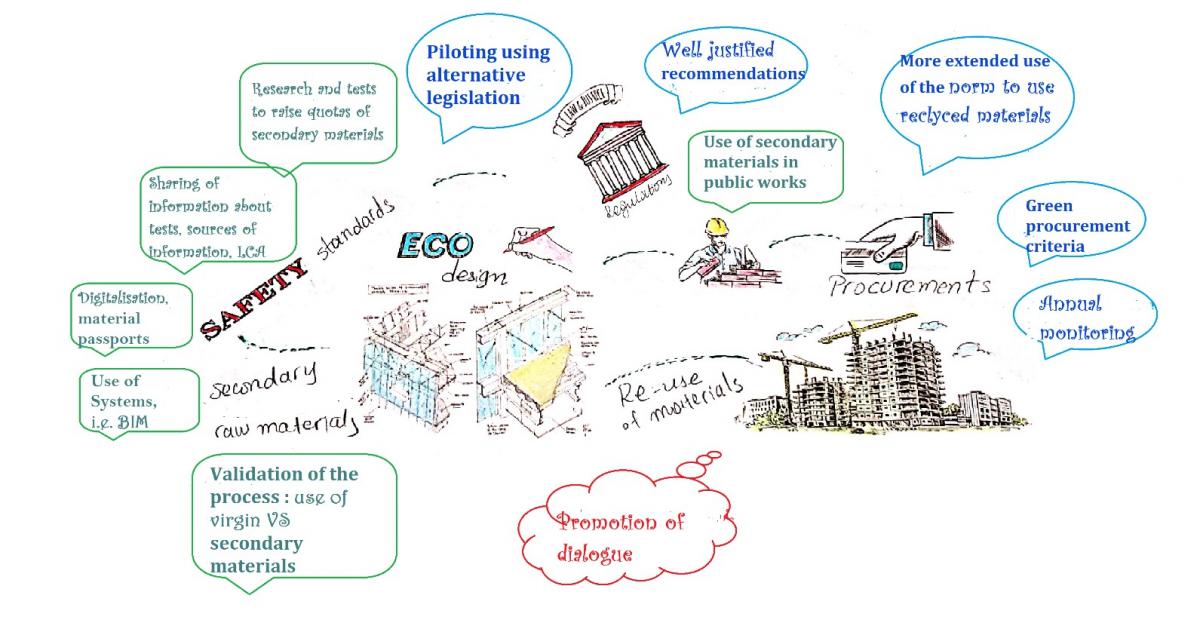 Piloting using
alternative
legislation
Well justified
recommendations
More extended use
of the norm to use
reclyced materials
Research and tests
to raise quotas of
secondary materials
LAW & JUSTICE
Regulations
Use of secondary
materials in
public works
Sharing of
information about
tests, sources of
information, LCA
SAFETY standards
ECO
design
Procurements
Green
procurement
criteria
Annual
monitoring
Digitalisation,
material
passports
Use of
Systems,
i.e. BIM
secondary
raw materials
Re-use
of materials
Validation of the
process : use of
virgin VS
secondary
materials
Promotion of
dialogue